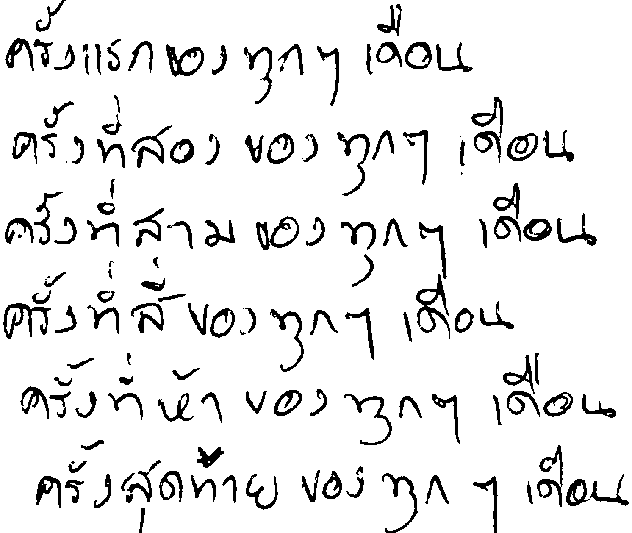 ครั้งแรกของทุกๆ เดือน
ครั้งที่สอง ของ ทุกๆ เดือน
ครั้งที่สาม ของ ทุกๆ เดือน
ครั้งที่สี่ ของ ทุกๆ เดือน
ครั้งที่ห้า ของ ทุกๆ เดือน
ครั้งสุดท้าย ของ ทุก ๆ เดือน